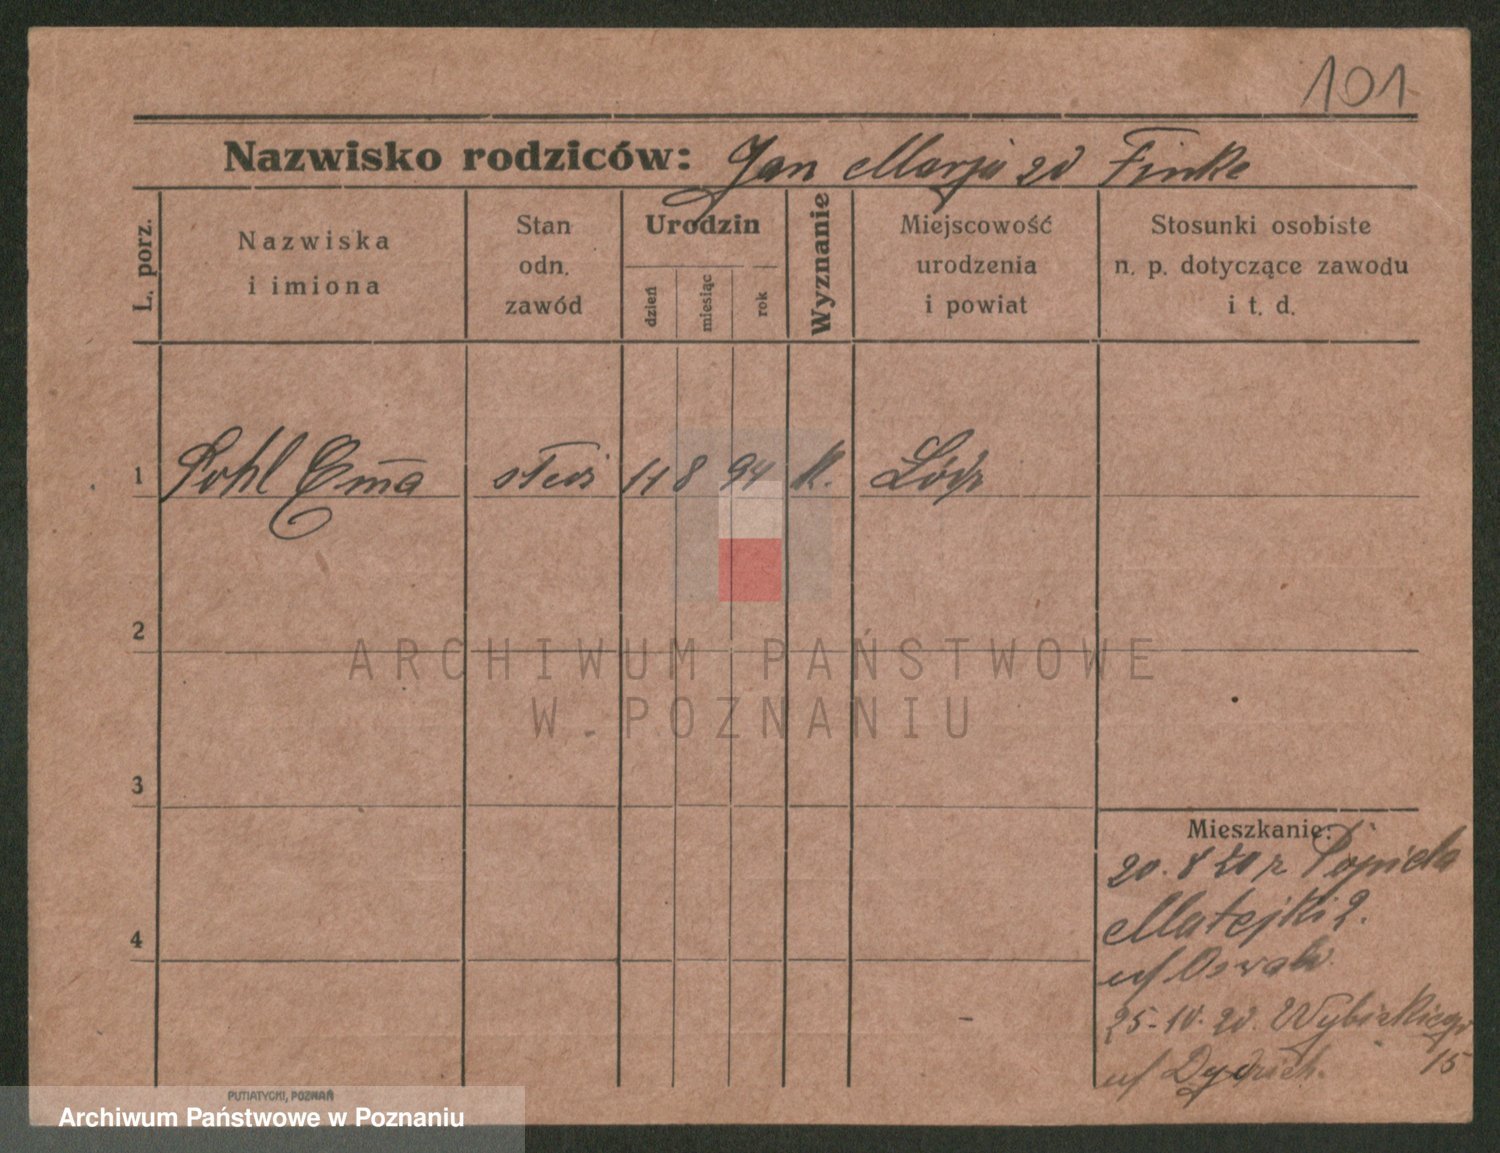 101
Nazwisko rodziców: Jan Marja zd Finke
L. porz.
Nazwiska
i imiona
Stan
odn.
zawód
Urodzin
dzień
miesiąc
rok
Wyznanie
Miejscowość
urodzenia
i powiat
Stosunki osobiste
n. p. dotyczące zawodu
i t. d.
1 Pohl Em̅a 11 8 94 k. Łódź
2
ARCHIWUM PAŃSTWOWE
W POZNANIU
3
Mieszkanie:
20. 8 20 r
Matejki 2.
4
25-10. 20. Wybickiego
15
PUTIATYCKI, POZNAŃ
Archiwum Państwowe w Poznaniu